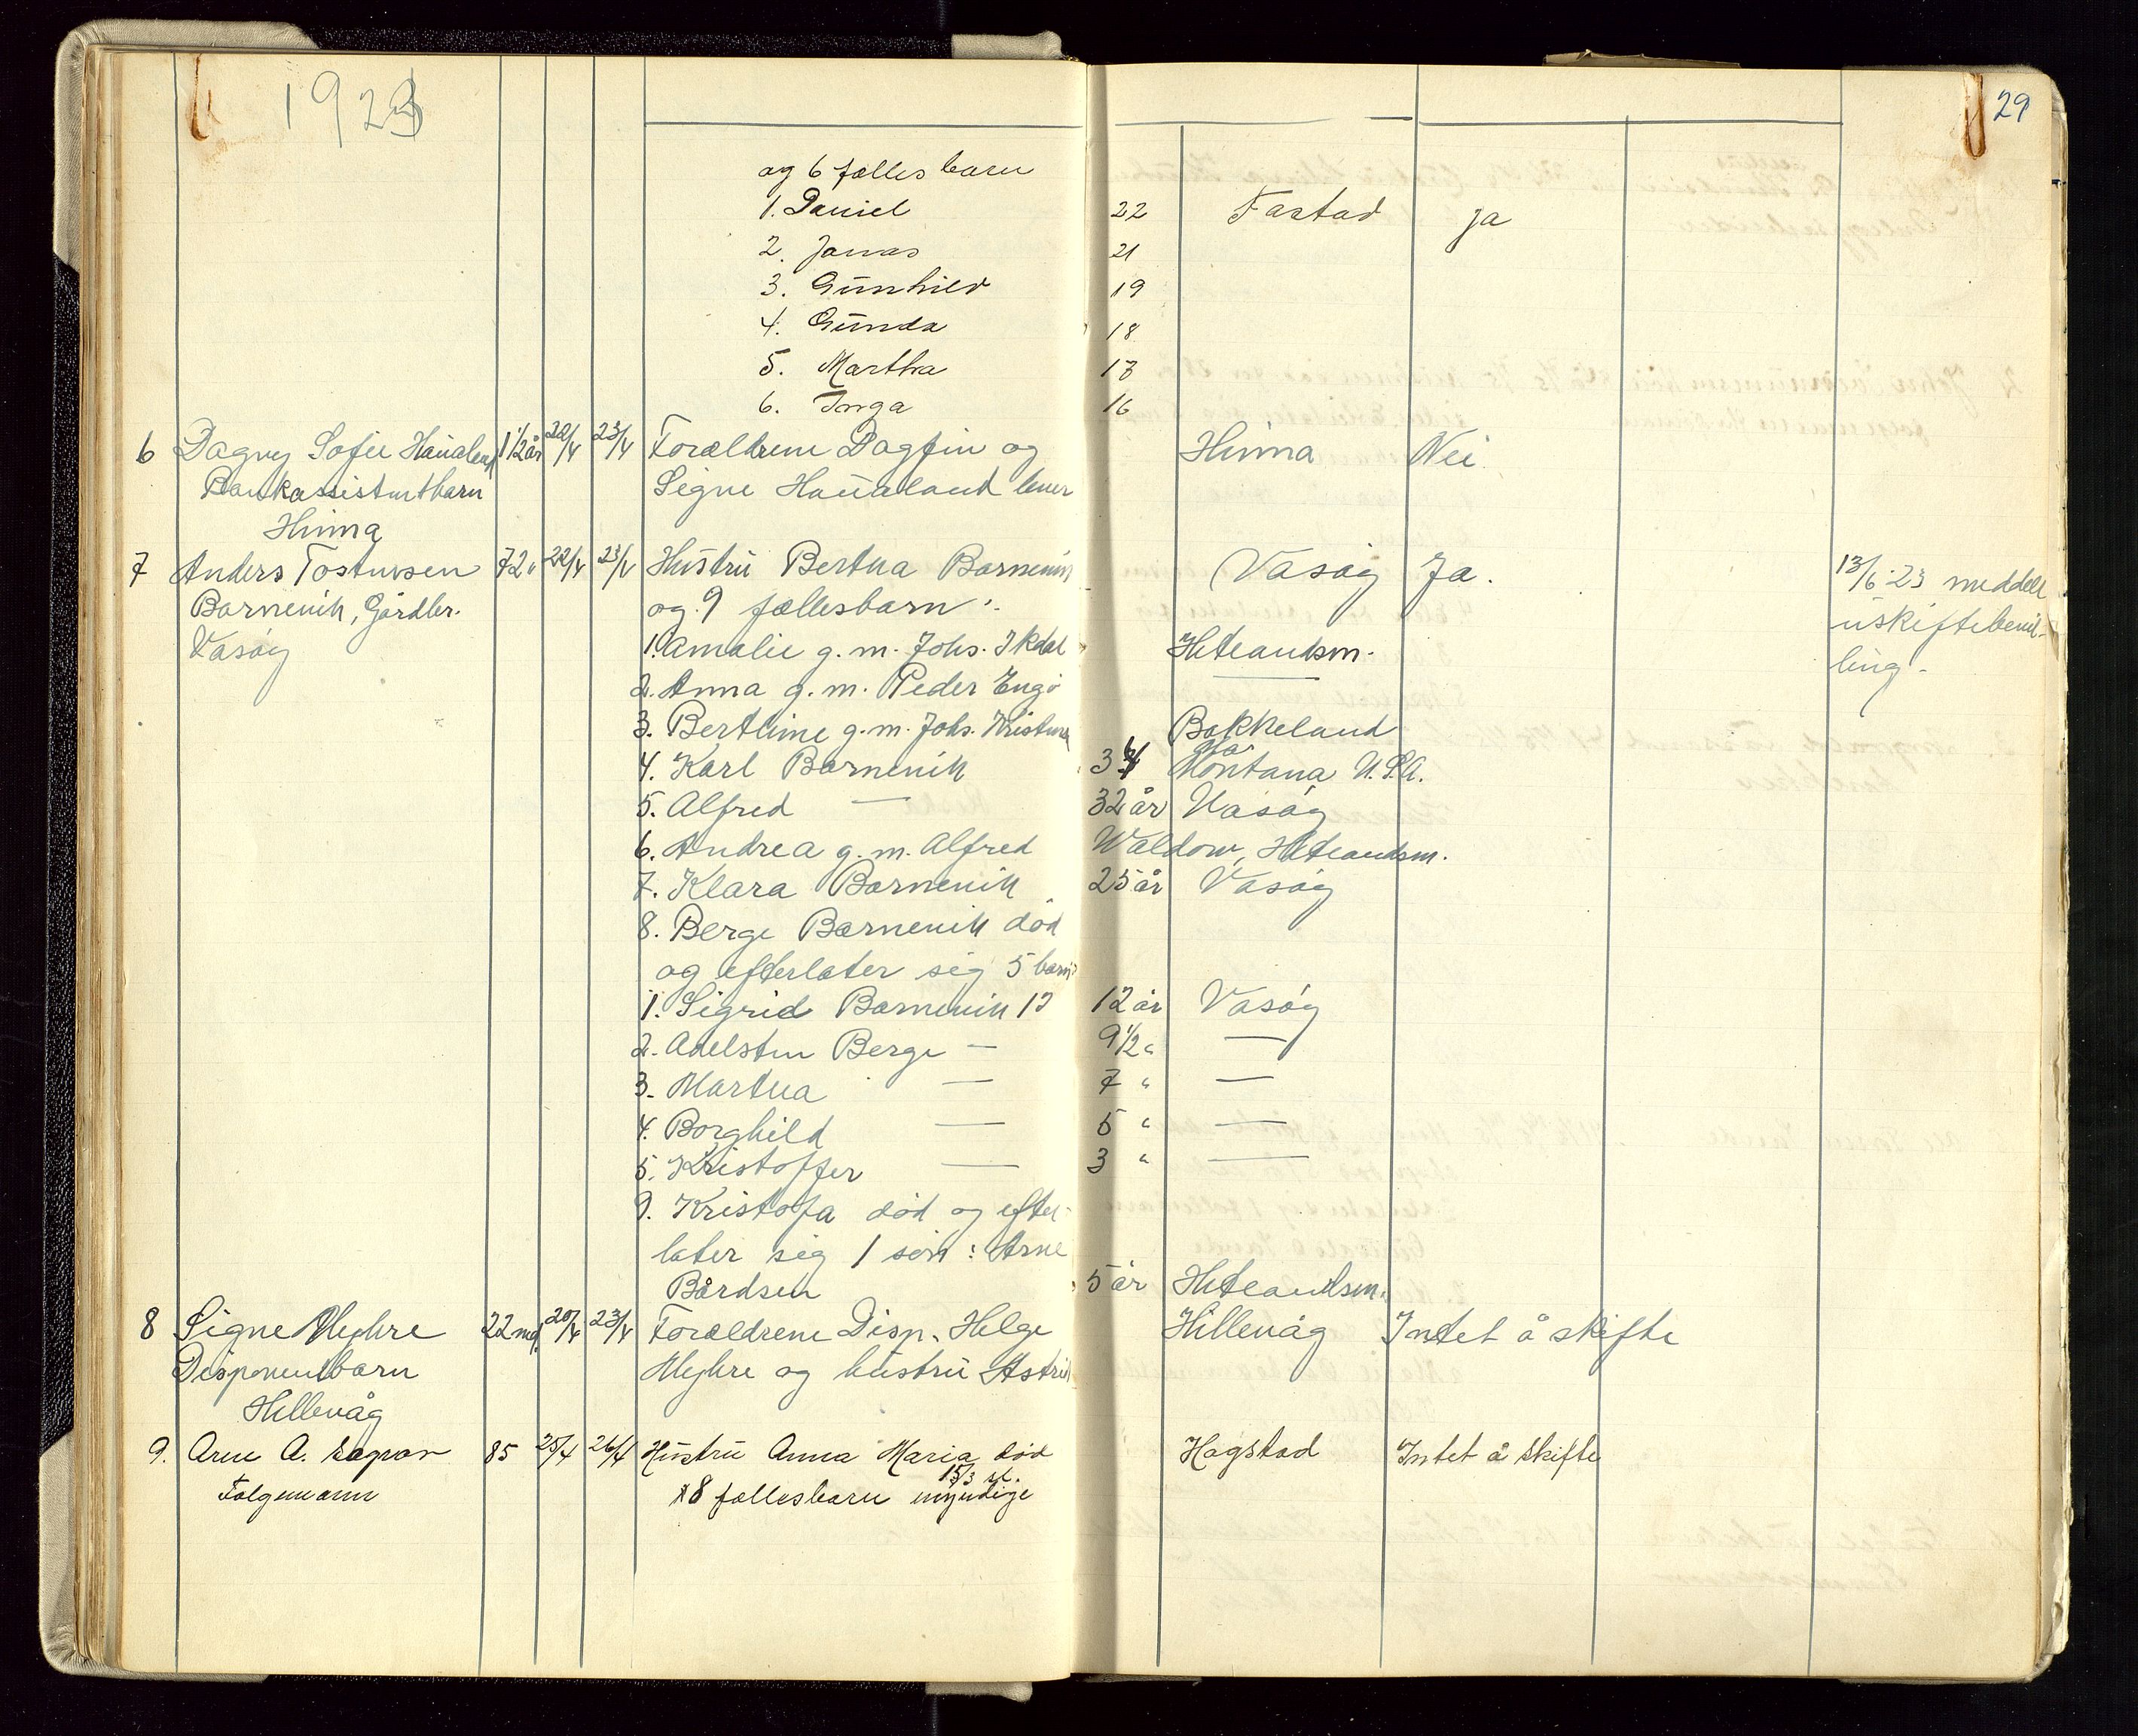 1923
29
og 6 fælles barn
1. Daniel 22 Tastad ja
2. Jonas 21
3. Gunhild 19
4. Gunda 18
5. Martha 17
6. Inga 16
6 Dagny Sofie Haualand 1 1/2 år 20/4 23/4 Forældrene Dagfin og Hinna Nei
Bankassistentbarn Signe Haualand lever
Hinna
7 Anders Tostensen 72 " 22/4 23/4 Hustru Bertha Barnevik Vasøy Ja. 13/6-23 meddelt
Barnevik, Gårdbr. og 9 fællesbarn: uskiftebevil-
Vasøy 1. Amalie g. m. Johs. Ikdal Heteandsm. ling.
2. Anna g. m. Peder Engø —
3. Bertline g. m. Johs. Kristensen Bakkeland
4. Karl Barnevik 34 Montana U.S.A.
5. Alfred — 32 år Vasøy
6. Andrea g. m. Alfred Waldow, Heteandsm.
7. Klara Barnevik 25 år Vasøy
8. Berge Barnevik død
og efterlater sig 5 barn:
1. Sigrid Barnevik 12 12 år Vasøy
2. Adelsten Berge — 9 1/2 " —
3. Martha — 7 " —
4. Borghild — 5 " —
5. Kristoffer — 3 " —
9. Kristofa død og efter-
later sig 1 søn: Arne
Bårdsen 5 år Heteandsm.
8 Signe Myhre 22 md. 20/4 23/4 Forældrene Disp. Helge Hillevåg Intet å skifte
Disponentbarn Myhre og hustru Astrid
Hillevåg
9. Arne A. 85 25/4 26/4 Hustru Anna Maria død Hagstad Intet å skifte
15/3 sl.
Følgemann 8 fællesbarn myndige